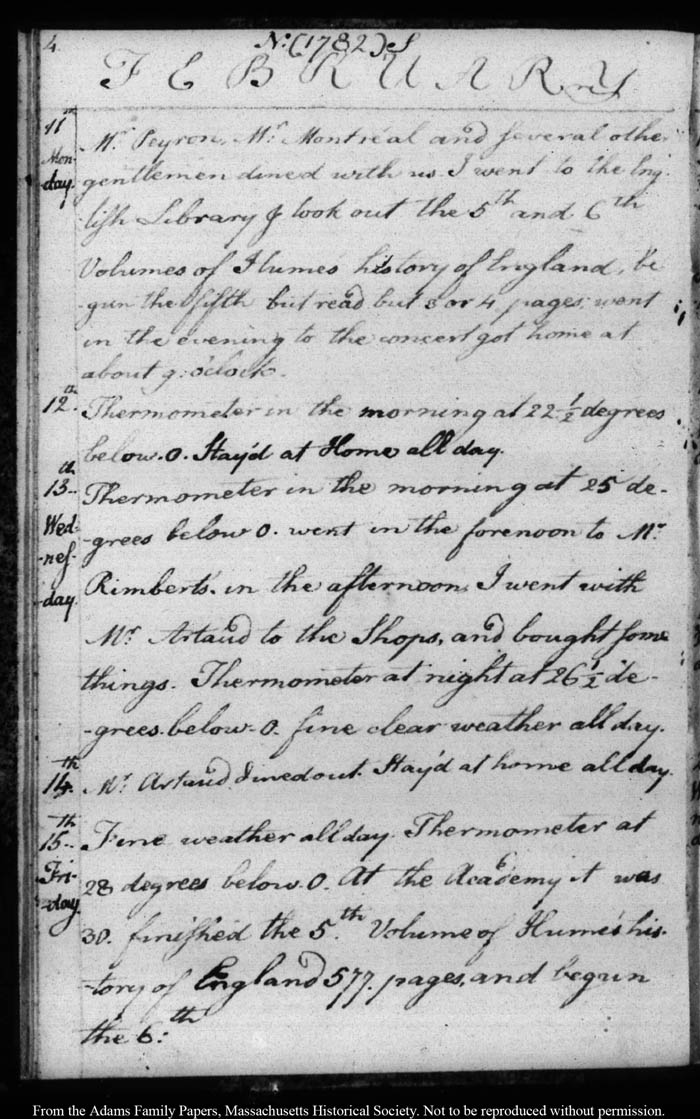 4
N:(1782) S
FEBRUARY
11th Monday. Mr. Peyron, Mr. Montréal and several other
gentlemen dined with us I went to the Eng-
-lish Library & took out the 5th and 6th
Volumes of Hume's history of England, be
-gun the fifth but read but 3 or 4 pages; went
in the evening to the concert got home at
about 9: o'clock.
12th. Thermometer in the morning at 22 1/2 degrees
below. 0. Stay'd at Home all day.
13th Wed-nes-day. Thermometer in the morning at 25 de-
-grees below 0. went in the forenoon to Mr.
Rimbert's. in the afternoon I went with
Mr. Artaud to the Shops, and bought some
things. Thermometer at night at 26 1/2 de-
-grees below. 0. fine clear weather all day.
14th. Mr. Artaud dined out. Stay'd at home all day.
15th Fri-day. Fine weather all day. Thermometer at
28 degrees below. 0. At the Academy it was
30. finished the 5th. Volume of Hume's his-
-tory of England 577. pages, and begun
the 6:th
From the Adams Family Papers, Massachusetts Historical Society. Not to be reproduced without permission.